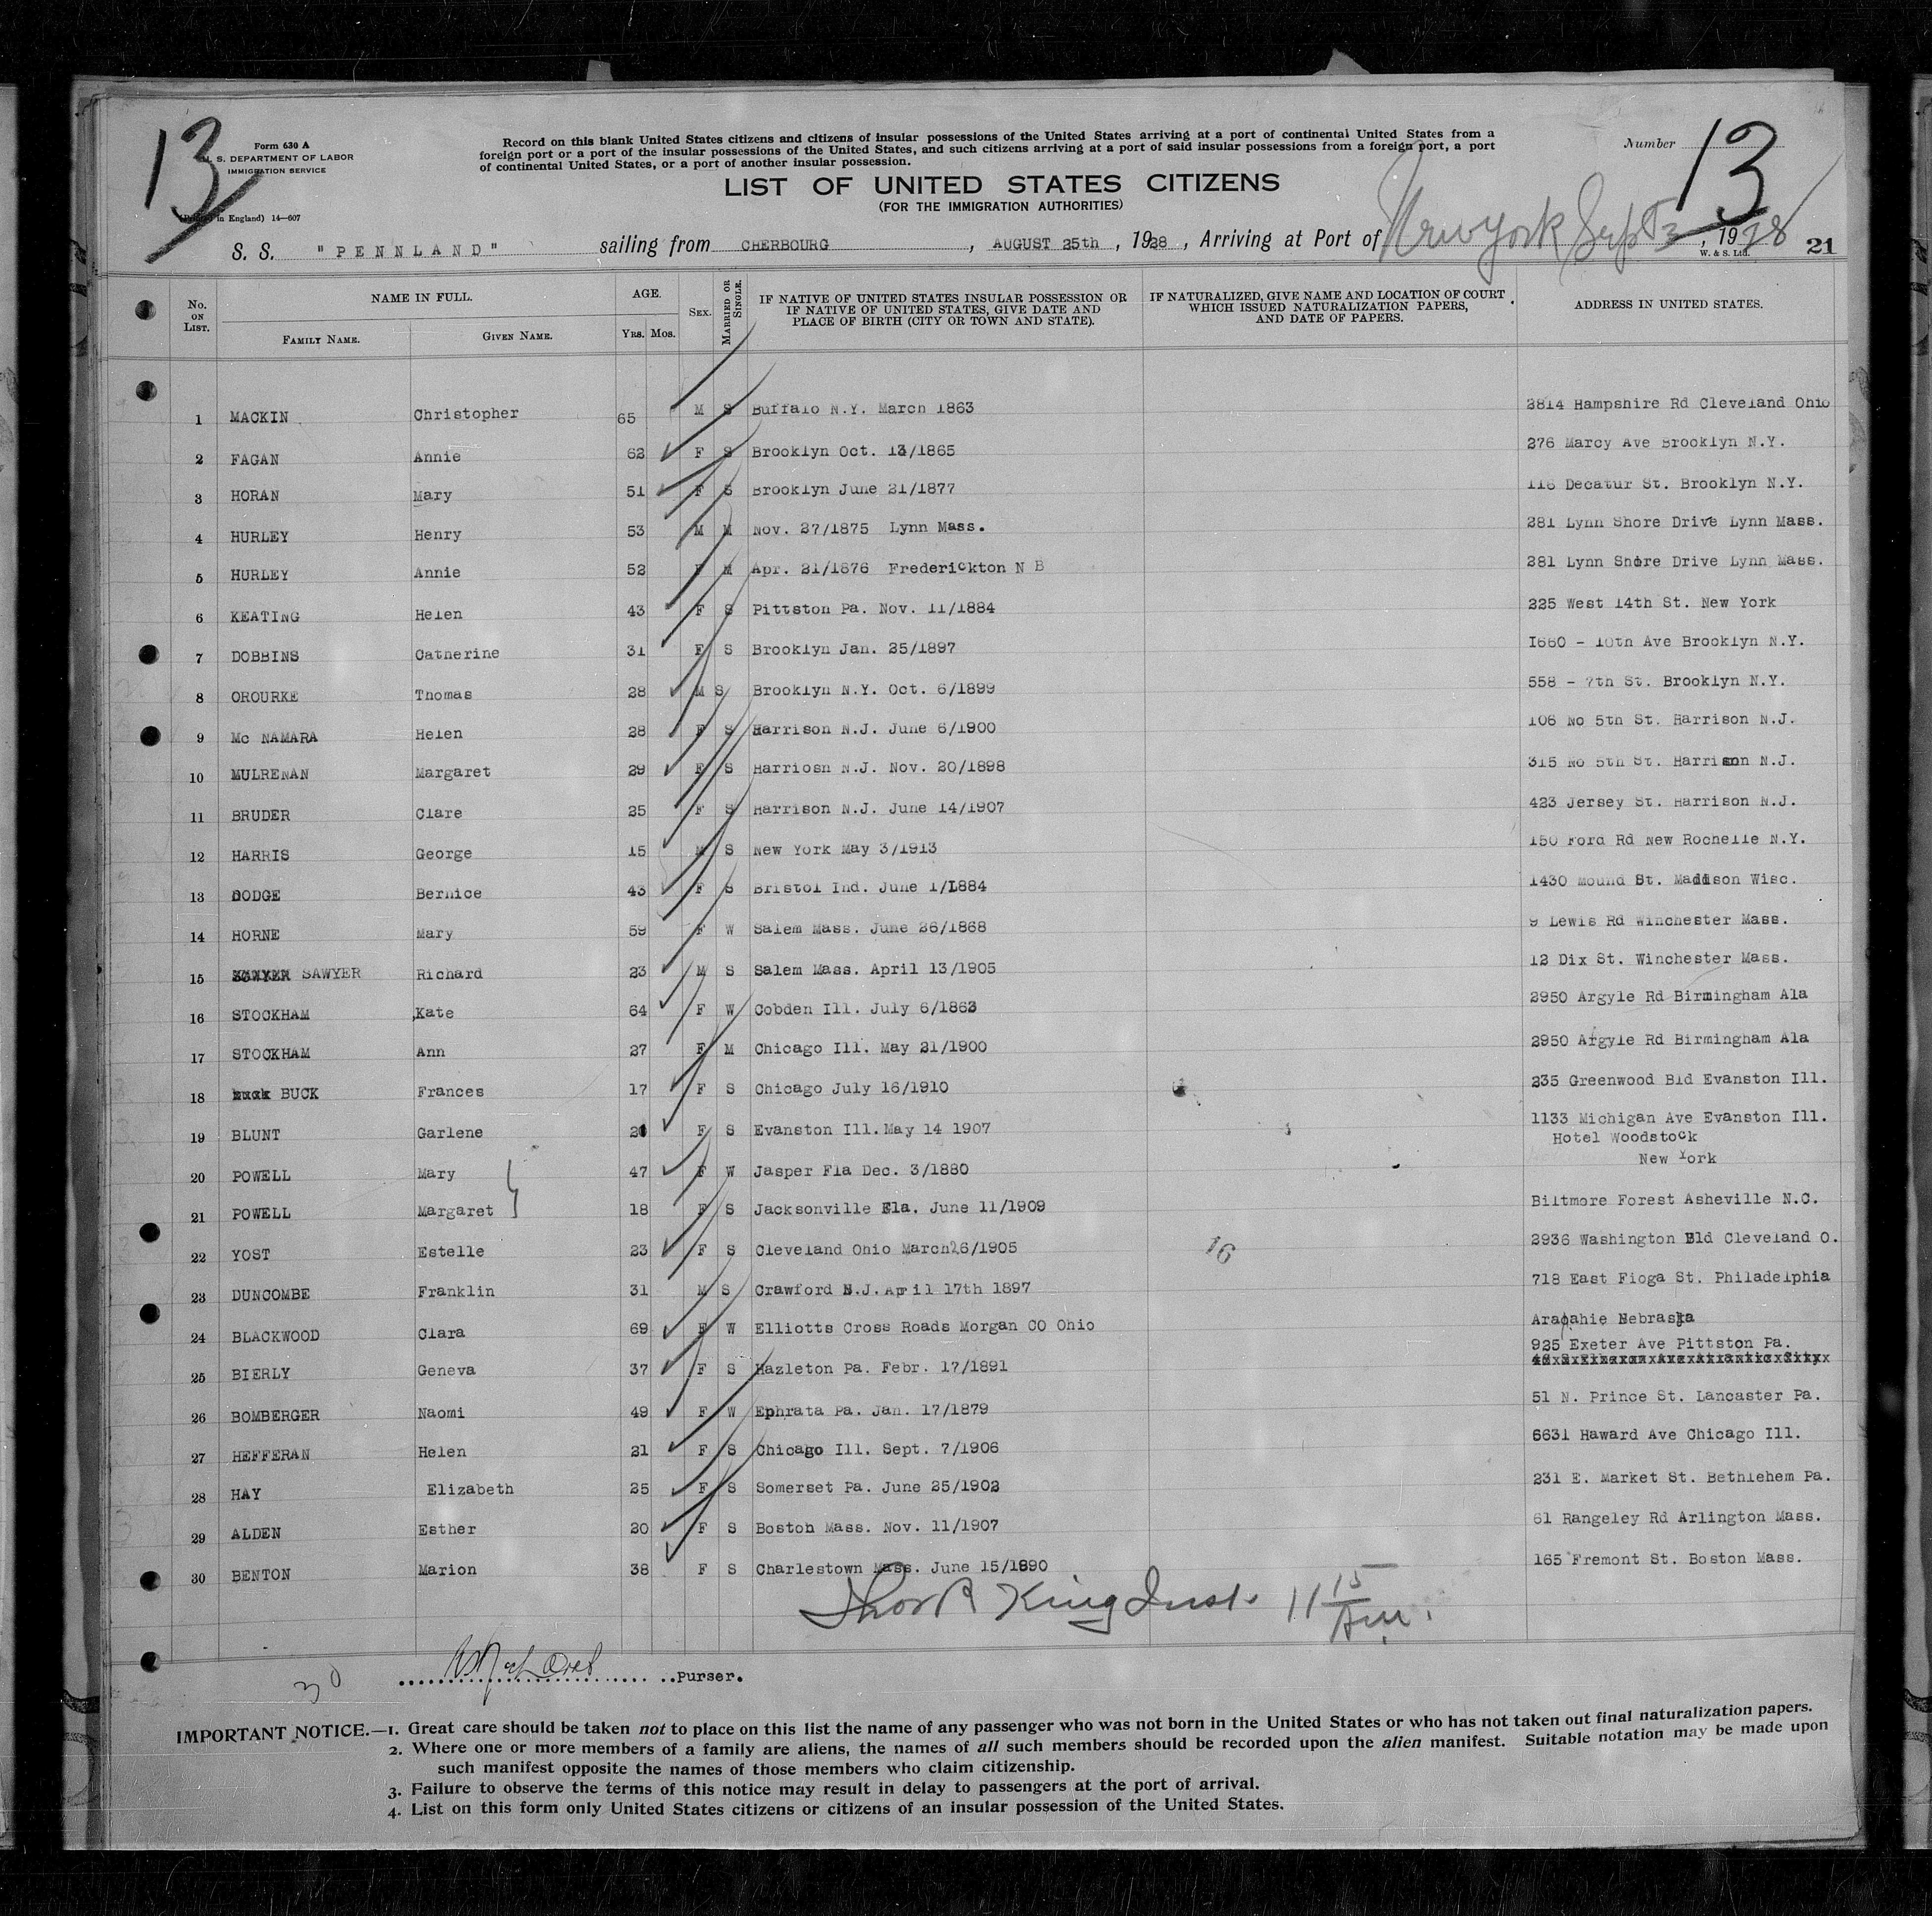 13
Form 630 A
U. S. DEPARTMENT OF LABOR
IMMIGRATION SERVICE
(Printed in England) 14—607
Record on this blank United States citizens and citizens of insular possessions of the United States arriving at a port of continental United States from a
foreign port or a port of the insular possessions of the United States, and such citizens arriving at a port of said insular possessions from a foreign port, a port
of continental United States, or a port of another insular possession.
Number 13
LIST OF UNITED STATES CITIZENS
(FOR THE IMMIGRATION AUTHORITIES)
S. S. "PENNLAND" sailing from CHERBOURG, AUGUST 25th, 1928, Arriving at Port of New York Sept 3, 1928
W. & S. Ltd. 21
No. ON LIST. NAME IN FULL. FAMILY NAME. GIVEN NAME. AGE. YRS. MOS. SEX. MARRIED OR SINGLE. IF NATIVE OF UNITED STATES INSULAR POSSESSION OR IF NATIVE OF UNITED STATES, GIVE DATE AND PLACE OF BIRTH (CITY OR TOWN AND STATE). IF NATURALIZED, GIVE NAME AND LOCATION OF COURT WHICH ISSUED NATURALIZATION PAPERS, AND DATE OF PAPERS. ADDRESS IN UNITED STATES.
1 MACKIN Christopher 65 M S Buffalo N.Y. March 1863 2814 Hampshire Rd Cleveland Ohio
2 FAGAN Annie 62 F S Brooklyn Oct. 13/1865 276 Marcy Ave Brooklyn N.Y.
3 HORAN Mary 51 F S Brooklyn June 21/1877 116 Decatur St. Brooklyn N.Y.
4 HURLEY Henry 53 M M Nov. 27/1875 Lynn Mass. 281 Lynn Shore Drive Lynn Mass.
5 HURLEY Annie 52 F M Apr. 21/1876 Frederickton N B 281 Lynn Shore Drive Lynn Mass.
6 KEATING Helen 43 F S Pittston Pa. Nov. 11/1884 225 West 14th St. New York
7 DOBBINS Catherine 31 F S Brooklyn Jan. 25/1897 1660 - 10th Ave Brooklyn N.Y.
8 OROURKE Thomas 28 M S Brooklyn N.Y. Oct. 6/1899 558 - 7th St. Brooklyn N.Y.
9 Mc NAMARA Helen 28 F S Harrison N.J. June 6/1900 106 No 5th St. Harrison N.J.
10 MULRENAN Margaret 29 F S Harriosn N.J. Nov. 20/1898 315 No 5th St. Harrison N.J.
11 BRUDER Clare 25 F S Harrison N.J. June 14/1907 423 Jersey St. Harrison N.J.
12 HARRIS George 15 M S New York May 3/1913 150 Ford Rd New Rochelle N.Y.
13 DODGE Bernice 43 F S Bristol Ind. June 1/1884 1430 Mound St. Madison Wisc.
14 HORNE Mary 59 F W Salem Mass. June 26/1868 9 Lewis Rd Winchester Mass.
15 SAWYER Richard 23 M S Salem Mass. April 13/1905 12 Dix St. Winchester Mass.
16 STOCKHAM Kate 64 F W Cobden Ill. July 6/1863 2950 Argyle Rd Birmingham Ala
17 STOCKHAM Ann 27 F M Chicago Ill. May 21/1900 2950 Argyle Rd Birmingham Ala
18 BUCK Frances 17 F S Chicago July 16/1910 235 Greenwood Bld Evanston Ill.
19 BLUNT Garlene 21 F S Evanston Ill. May 14 1907 1133 Michigan Ave Evanston Ill.
20 POWELL Mary 47 F W Jasper Fla Dec. 3/1880 Hotel Woodstock New York
21 POWELL Margaret 18 F S Jacksonville Fla. June 11/1909 Biltmore Forest Asheville N.C.
22 YOST Estelle 23 F S Cleveland Ohio March 26/1905 16 2936 Washington Bld Cleveland O.
23 DUNCOMBE Franklin 31 M S Crawford N.J. April 17th 1897 718 East Fioga St. Philadelphia
24 BLACKWOOD Clara 69 F W Elliotts Cross Roads Morgan CO Ohio Arapahie Nebraska
25 BIERLY Geneva 37 F S Hazleton Pa. Febr. 17/1891 925 Exeter Ave Pittston Pa.
26 BOMBERGER Naomi 49 F W Ephrata Pa. Jan. 17/1879 51 N. Prince St. Lancaster Pa.
27 HEFFERAN Helen 21 F S Chicago Ill. Sept. 7/1906 6631 Haward Ave Chicago Ill.
28 HAY Elizabeth 25 F S Somerset Pa. June 25/1902 231 E. Market St. Bethlehem Pa.
29 ALDEN Esther 20 F S Boston Mass. Nov. 11/1907 61 Rangeley Rd Arlington Mass.
30 BENTON Marion 38 F S Charlestown Mass. June 15/1890 165 Fremont St. Boston Mass.
Thos R King Inst. 11 15 Am.
30 Purser.
IMPORTANT NOTICE.—1. Great care should be taken not to place on this list the name of any passenger who was not born in the United States or who has not taken out final naturalization papers.
2. Where one or more members of a family are aliens, the names of all such members should be recorded upon the alien manifest. Suitable notation may be made upon
such manifest opposite the names of those members who claim citizenship.
3. Failure to observe the terms of this notice may result in delay to passengers at the port of arrival.
4. List on this form only United States citizens or citizens of an insular possession of the United States.